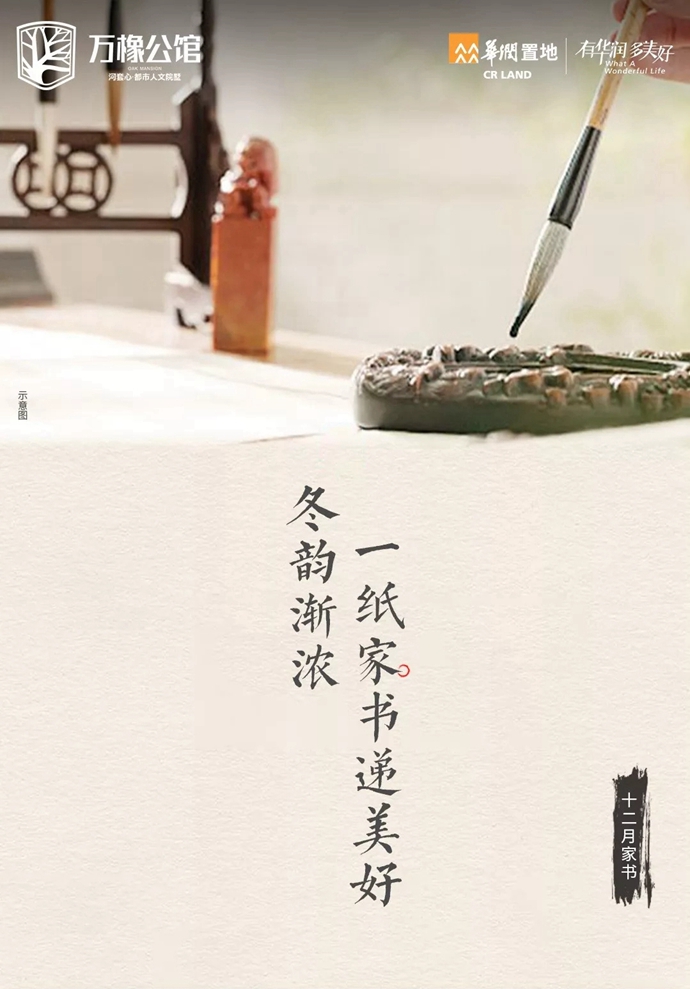 万橡公馆
OAK MANSION
河套心·都市人文院墅
華潤置地
CR LAND
有华润 多美好
What A
Wonderful Life
示意图
冬韵渐浓
一纸家书递美好
十二月家书